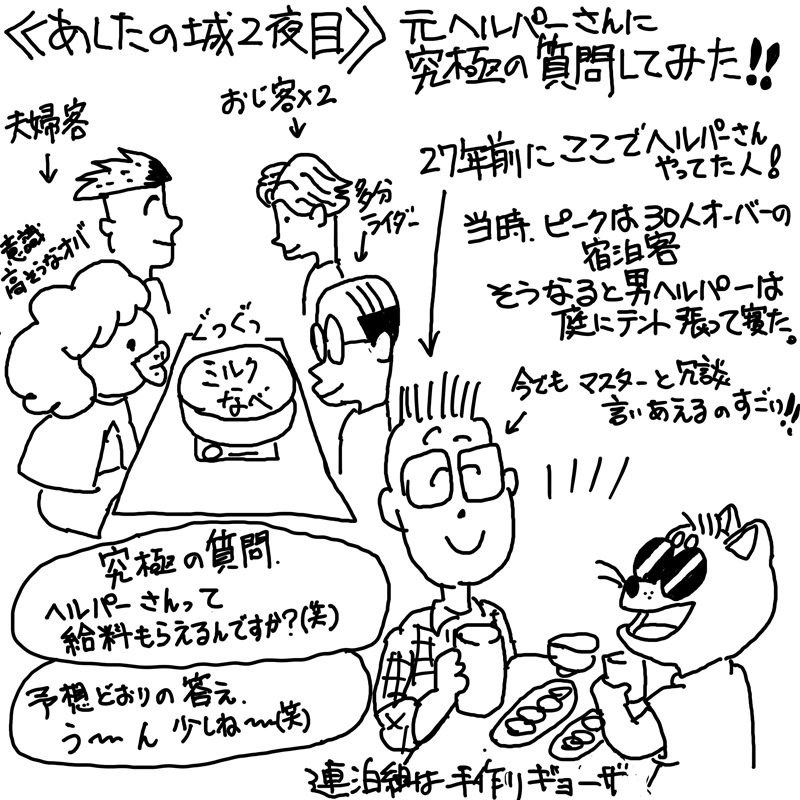 ≪あしたの城2夜目≫
元ヘルパーさんに
究極の質問してみた!!
夫婦客
おじ客×2
多分
ライダー
意識
高そうなオバ
ぐつぐつ
ミルク
なべ
27年前にここでヘルパーさん
やってた人!
当時、ピークは30人オーバーの
宿泊客
そうなると男ヘルパーは
庭にテント張って寝た。
今でもマスターと冗談
言いあえるのすごい!!
究極の質問.
ヘルパーさんって
給料もらえるんですか?(笑)
予想どおりの答え.
う〜ん 少しね〜(笑)
連泊組は手作りギョーザ